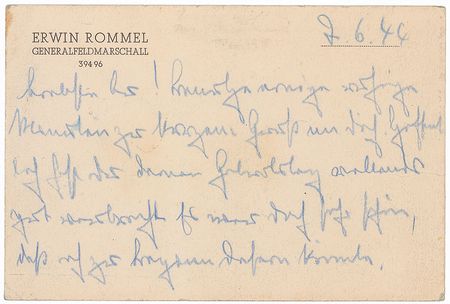 ERWIN ROMMEL
GENERALFELDMARSCHALL
39496
7.6.44
Liebste Lu! Benutze einige ruhige
Minuten zur kurzem Gruß an Dich. Hoffent
lich hast Du Deinen Geburtstag vollends
gut verbracht. Es war doch sehr schön,
daß ich zu Beginn daheim konnte.